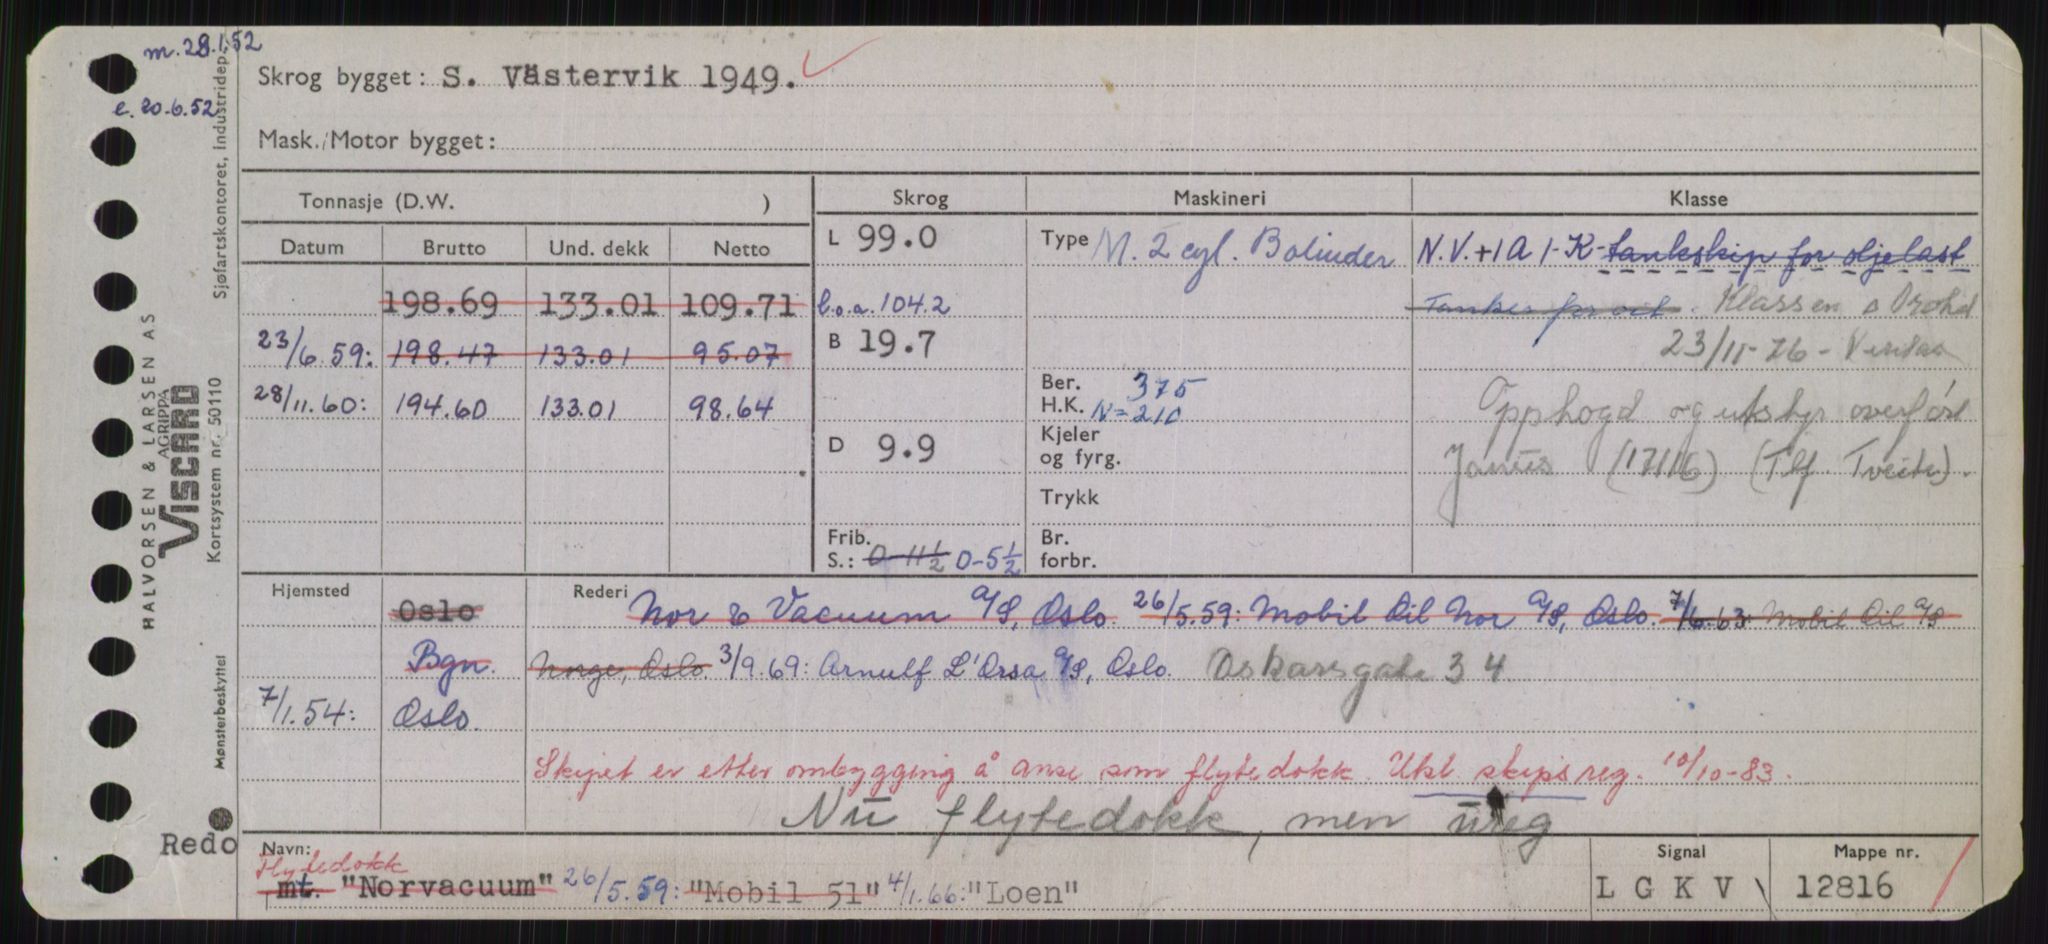 m. 28.1.52
e. 20.6.52
Skrog bygget: S. Västervik 1949.
Mask./Motor bygget:
Tonnasje (D.W. )
Skrog
Maskineri
Klasse
Datum Brutto Und. dekk Netto
198.69 133.01 109.71
23/6.59: 198.47 133.01 95.07
28/11.60: 194.60 133.01 98.64
L 99.0
b.o.a. 104.2
B 19.7
D 9.9
Frib.
S.: 0-11½ 0-5½
Type M. 2 cyl. Bolinder
Ber. 375
H.K. N=210
Kjeler
og fyrg.
Trykk
Br.
forbr.
N.V. +1A 1-K- tankskip for oljelast
Tanker for oil. Klassen
23/11-76 - Veritas
Opphogd og utstyr overført
Janus (17116) (Tlf. Tveite).
Hjemsted
Oslo
Bgn.
7/1.54: Oslo.
Rederi Nor & Vacuum A/S, Oslo. 26/5.59: Mobil Oil Nor A/S, Oslo. 7/6.63: Mobil Oil A/S
Norge, Oslo. 3/9.69: Arnulf L'Orsa A/S, Oslo. Oskarsgate 34
Skipet er etter ombygging å anse som flytedokk. Utsl. skipsreg. 10/10-83.
Nu flytedokk, men ureg
Redo
Navn:
Flytedokk
mt. "Norvacuum" 26/5.59: "Mobil 51" 4/1.66: "Loen"
Signal
LGKV
Mappe nr.
12816
HALVORSEN & LARSEN AS
AGRIPPA
VISCARD
Kortsystem nr. 50110
Sjøfartskontoret, Industridep.
Mønsterbeskyttet